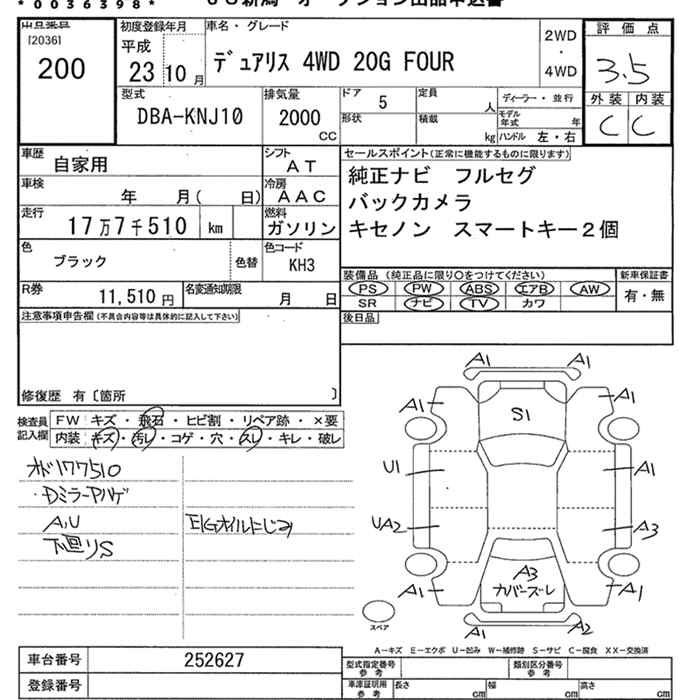 *0036398* USS新潟 オークション出品申込書
出品番号
[2036]
200
初度登録年月
平成
23年10月
車名・グレード
デュアリス 4WD 20G FOUR
2WD
・
4WD
評価点
3.5
外装 内装
C C
型式
DBA-KNJ10
排気量
2000
CC
ドア
5
定員
人
ディーラー・並行
形状
積載
kg
モデル年式
年
ハンドル 左・右
車歴
自家用
シフト
AT
セールスポイント(正常に機能するものに限ります)
純正ナビ フルセグ
バックカメラ
キセノン スマートキー2個
車検
年 月( 日)
冷房
AAC
走行
17万7千510 km
燃料
ガソリン
色
ブラック
色替
色コード
KH3
装備品 (純正品に限り○をつけてください)
PS PW ABS エアB AW
SR ナビ TV カワ
新車保証書
有・無
R券
11,510円
名変通知期限
月 日
後日品
注意事項申告欄(不具合内容等は具体的に記入して下さい)
修復歴 有〔箇所 〕
検査員記入欄
FW キズ・飛石・ヒビ割・リペア跡・×要
内装 キズ・汚レ・コゲ・穴・スレ・キレ・破レ
オド177510
・Dミラーアハゲ
A,U
下廻りS
E/Gオイルにじみ
A1 A1
A1 S1 A1
U1 A1
UA2 A3
A3
カバーズレ
A1 A1
A1 A2
スペア
A-キズ E-エクボ U-凹み W-補修跡 S-サビ C-腐食 XX-交換済
車台番号
252627
登録番号
型式指定番号
参考
類別区分番号
参考
車庫証明用
参考
長さ
cm
幅
cm
高さ
cm